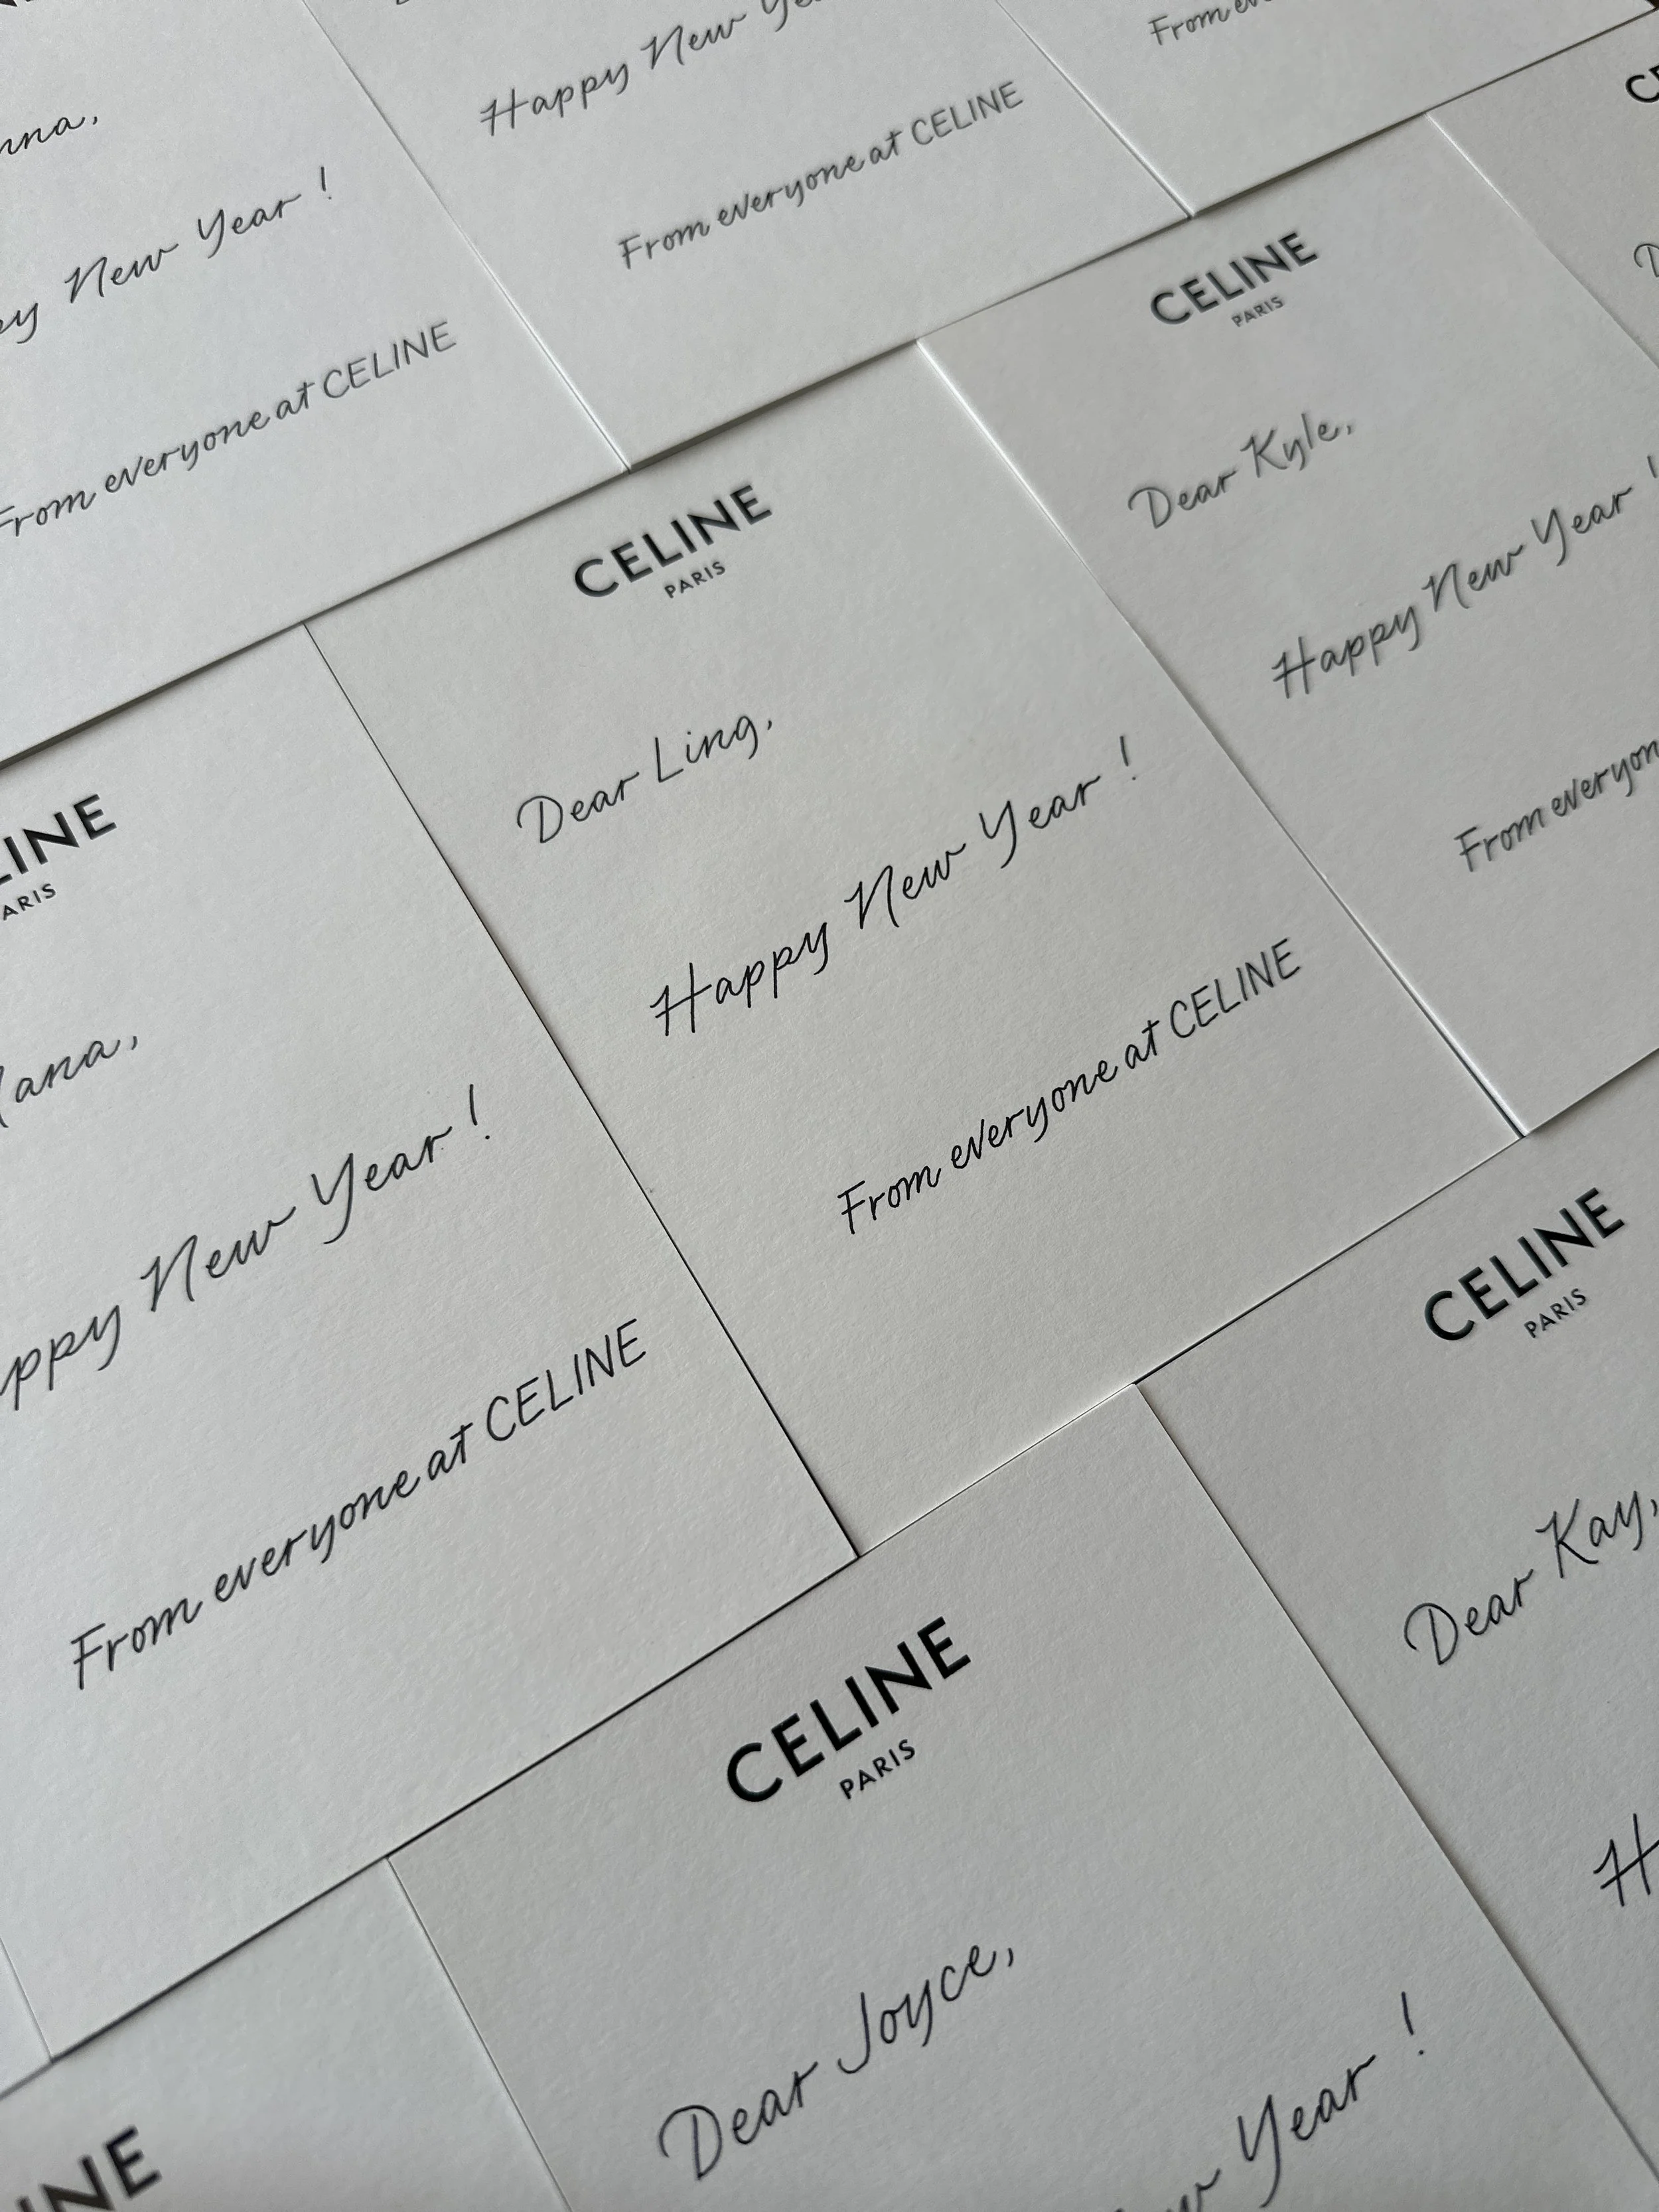 Happy New
From everyone at CELINE
From
New Year !
From everyone at CELINE
CELINE
PARIS
Dear Kyle,
Happy New Year !
From
CELINE
PARIS
Dear Ling,
Happy New Year !
From everyone at CELINE
New Year !
From everyone at CELINE
CELINE
PARIS
Dear Kay,
CELINE
PARIS
Dear Joyce,
Year !